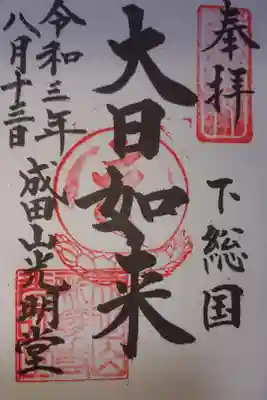 奉拝
下総国
大日如来
令和三年
八月十三日
成田山光明堂